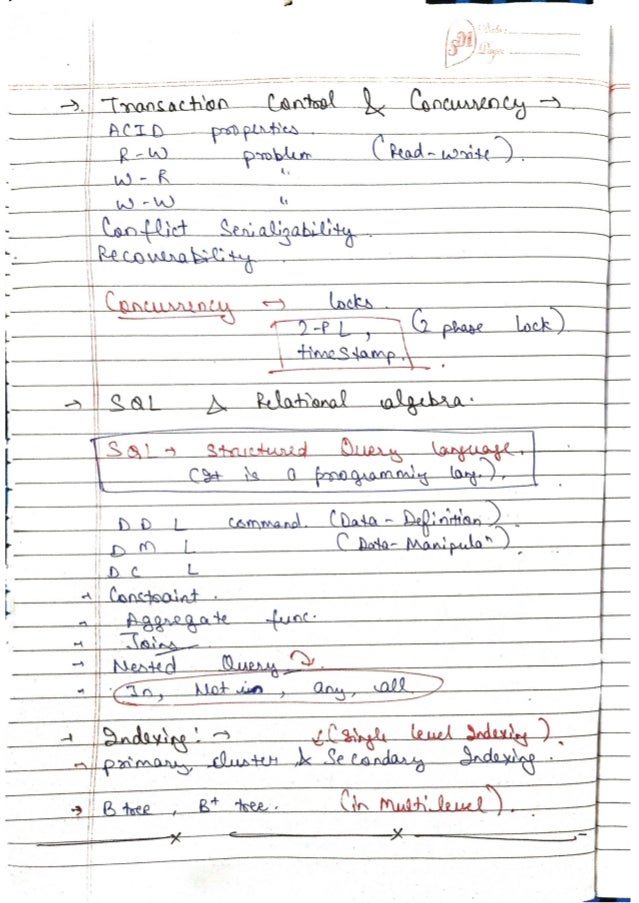 SDM Date:
Page:
→. Transaction Control & Concurrency →.
ACID properties.
R-W problem (Read-write).
W-R "
W-W "
Conflict Serializability.
Recoverability.
Concurrency → locks.
2-PL, (2 phase lock)
timeStamp.
→ SQL & Relational algebra.
SQL → Structured Query language.
(It is a programmiy lang.).
D D L command. (Data-Definition)
D M L (Data-Manipulaⁿ).
D C L
→ Constraint.
→ Aggregate func.
→ Joins
→ Nested Query
→ In, Not in, any, all
→ Indexing: → (Single level Indexing).
→ primary, cluster & Secondary Indexing.
→ B tree, B+ tree. (in Multilevel).